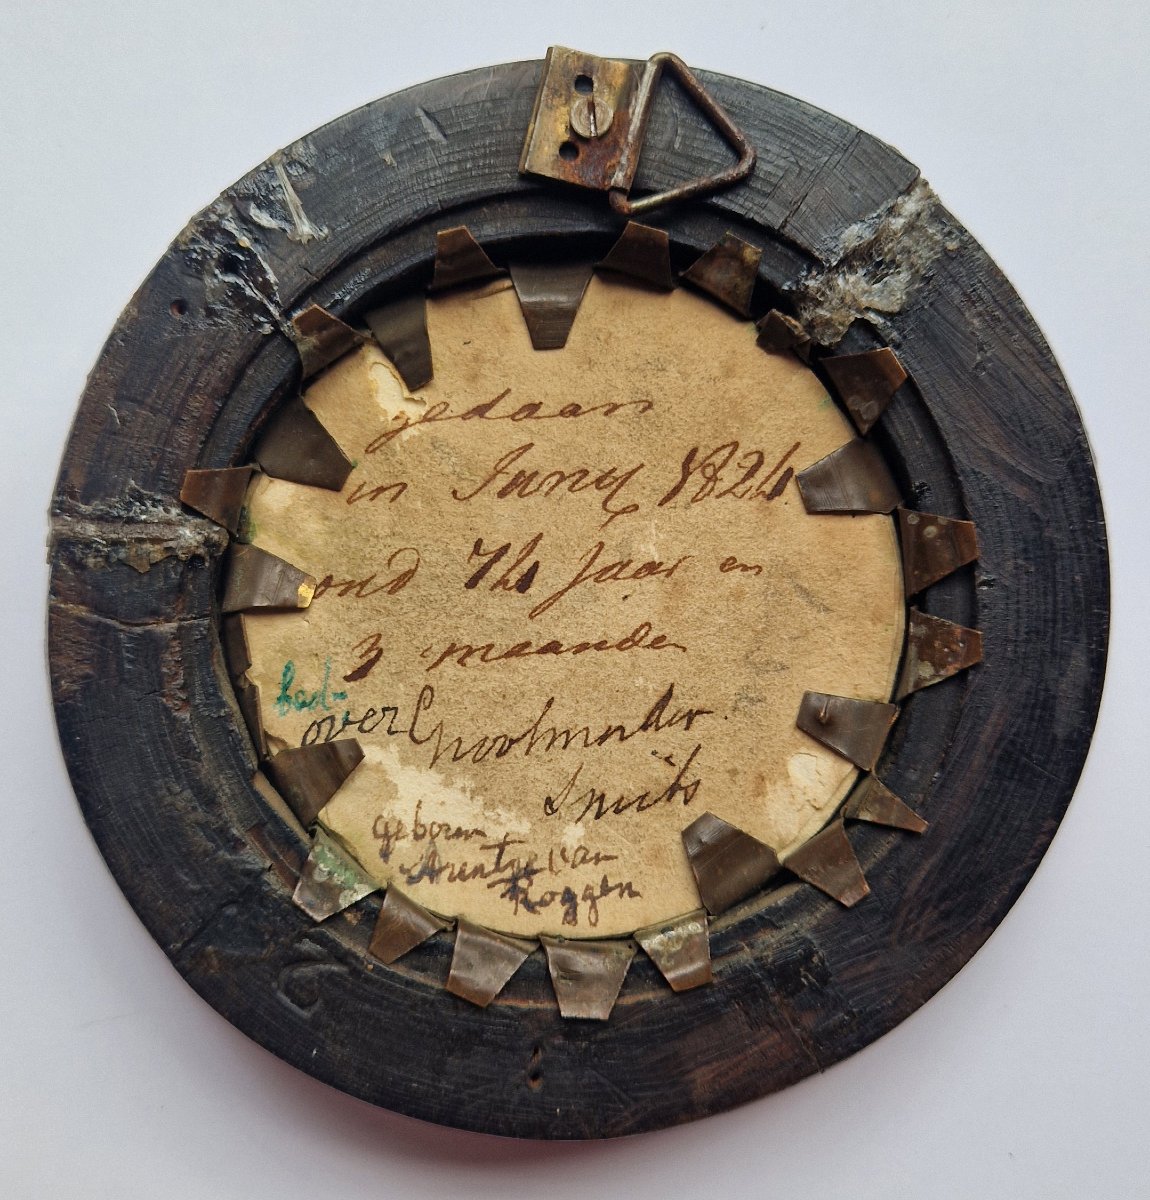 gedaan
in Juny 1824
oud 74 Jaar en
3 maanden
bed-
over Grootmoeder
Smits
geboren
Arentje van
Roggen